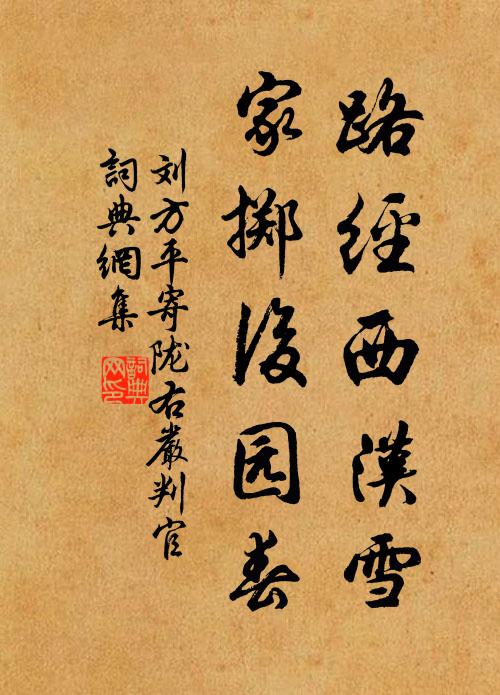 路經西漢雪
家擲後园春
刘方平寄陇右嚴判官
詞典網集
詞典网印